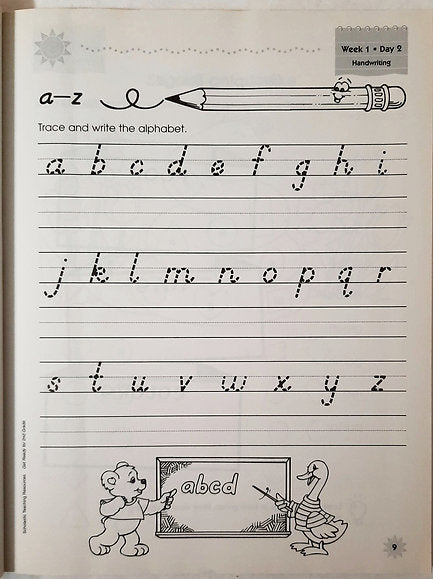 Week 1 • Day 2
Handwriting
a–z
Trace and write the alphabet.
a b c d e f g h i
j k l m n o p q r
s t u v w x y z
abcd
Scholastic Teaching Resources Get Ready for 2nd Grade
9